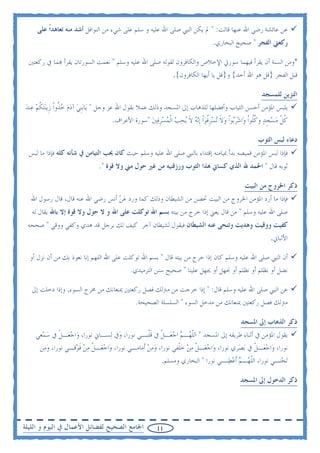 ✓ عن عائشة رضي الله عنها قالت: " لم يكن النبي صلى الله عليه و سلم على شيء من النوافل أشد منه تعاهداً على
ركعتي الفجر " صحيح البخاري.
*ومن السنة أن يقرأ فيهما سورتي الإخلاص والكافرون لقوله صلى الله عليه وسلم " نعمت السورتان يقرأ بهما في ركعتين
قبل الفجر {قل هو الله أحد} و{قل يا أيها الكافرون}.
التزين للمسجد
✓ يلبس المؤمن أحسن الثياب وأفضلها للذهاب إلى المسجد وذلك عملا بقول الله عز وجل " يَا بَنِي آدَمَ خُذُوا زِينَتَكُمْ عِندَ
كُلِّ مَسْجِدٍ وكُلُوا وَاشْرَبُوا وَلَا تُسْرِفُوا إِنَّهُ لَا يُحِبُّ الْمُسْرِفِينَ "سورة الأعراف.
دعاء لبس الثوب
✓ فإذا ما لبس المؤمن قميصه بدأ بميامنه إقتداءً بالنبي صلى الله عليه وسلم حيث كان يحب التيامن في شأنه كله فإذا ما لبس
ثوبه قال " الحمد لله الذي كساني هذا الثوب ورزقنيه من غير حول مني ولا قوة ".
ذكر الخروج من البيت
✓ فإذا ما أراد المؤمن الخروج من البيت تحصن من الشيطان وذلك كما ورد عَنْ أنس رضي الله عنه قال، قال رسول الله
صلى الله عليه وسلم " من قال يعني إذا خرج من بيته بسم الله توكلت على الله و لا حول ولا قوة إلا بالله يقال له
كفيت ووقيت وهديت وتنحى عنه الشيطان فيقول لشيطان آخر كيف لك برجل قد هدي وكفي ووقي " صححه
الألباني.
✓ أن النبي صلى الله عليه وسلم كان إذا خرج من بيته قال " بسم الله توكلت على الله اللهم إنا نعوذ بك من أن نزل أو
نضل أو نظلم أو نظلم أو نجهل أو يجهل علينا " صحيح سنن الترمذي.
✓ عن النبي صلى الله عليه وسلم قال: " إذا خرجت من منزلك فصل ركعتين يمنعانك من مخرج السوء، وإذا دخلت إلى
منزلك فصل ركعتين يمنعانك من مدخل السوء " السلسلة الصحيحة.
ذكر الذهاب إلى المسجد
✓ يقول المؤمن في أثناء طريقه إلى المسجد " اللَّهُمَّ اجْعَلْ فِي قَلْبِي نورا، وَفِي لِسَانِي نورا، وَاجْعَلْ فِي سَمْعِي
نورا، وَاجْعَلْ فِي بَصَرِي نورا، وَاجْعَلْ مِنْ خَلْفِي نورا، وَمِنْ أَمَامِي نورا، وَاجْعَلْ مِنْ فَوْقِي نورا، وَمِن
تَحْتِي نورا، اللَّهُمَّ أَعْطِنِي نورا " البخاري ومسلم.
ذكر الدخول إلى المسجد
11 الجامع الصحيح لفضائل الأعمال في اليوم و الليلة